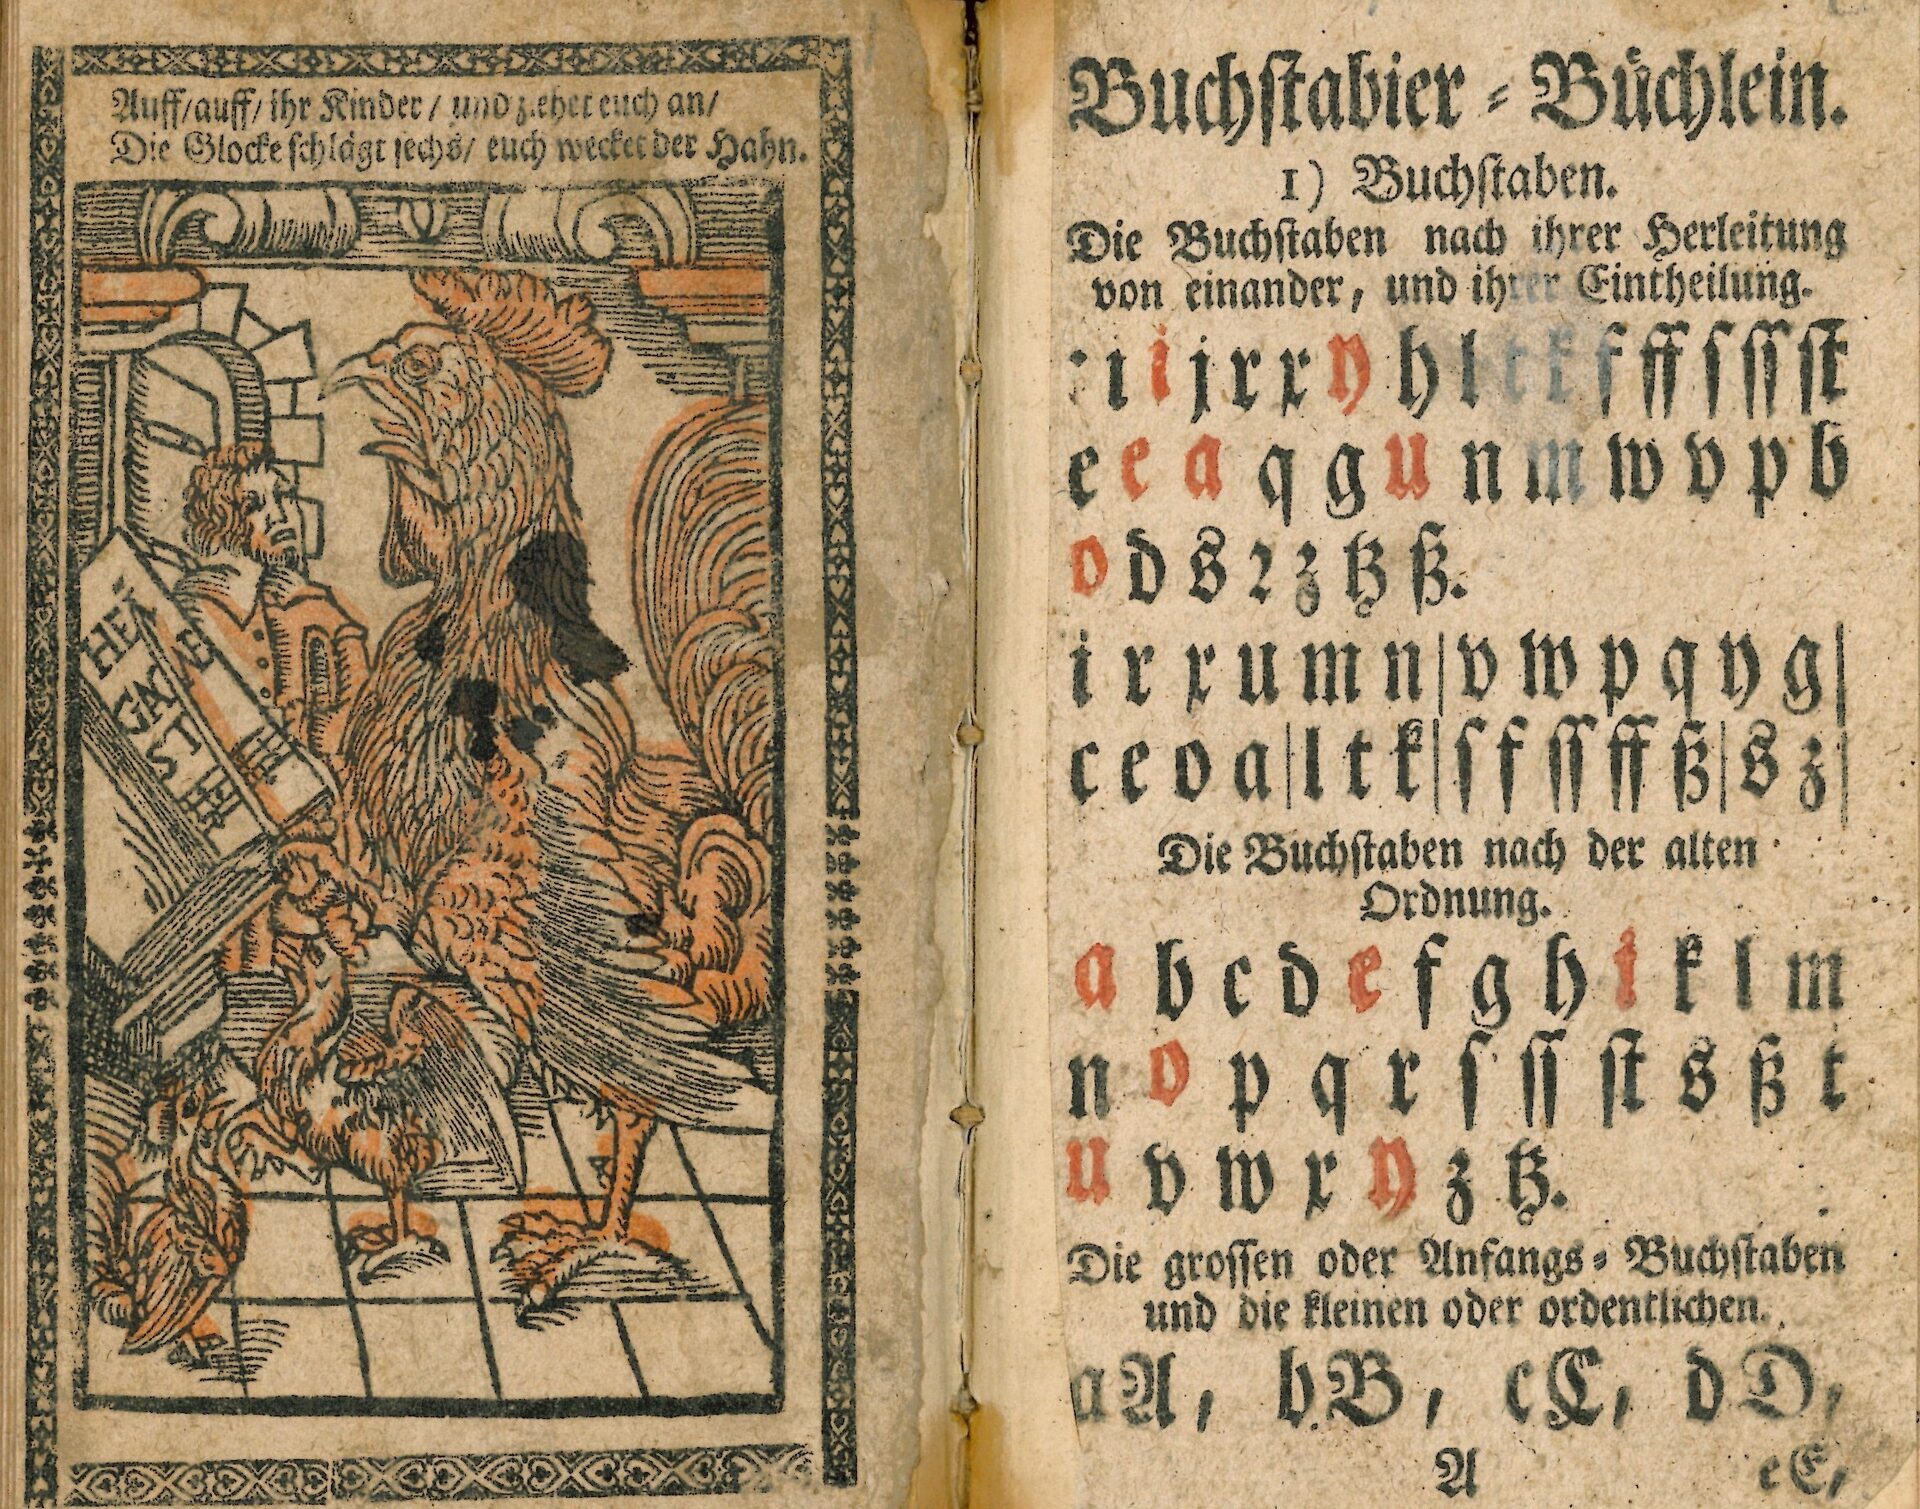 Auff/auff/ ihr Kinder/ und ziehet euch an/
Die Glocke schlägt sechs/ euch wecket der Hahn.
GA
ST
Buchſtabier⸗Buͤchlein.
1) Buchſtaben.
Die Buchſtaben nach ihrer Herleitung
von einander, und ihrer Eintheilung.
ı i j r x y h l t k f ff ſ ſſ ſt
e e a q g u n m w v p b
o d s ꝛ z tz ß.
i r x u m n | v w p q y g |
c e o a | l t k | ſ f ſſ ff ß | s z |
Die Buchſtaben nach der alten
Ordnung.
a b c d e f g h i k l m
n o p q r ſ ſſ ſt s ß t
u v w x y z tz.
Die groſſen oder Anfangs⸗Buchſtaben
und die kleinen oder ordentlichen.
a A, b B, c C, d D,
A e E,